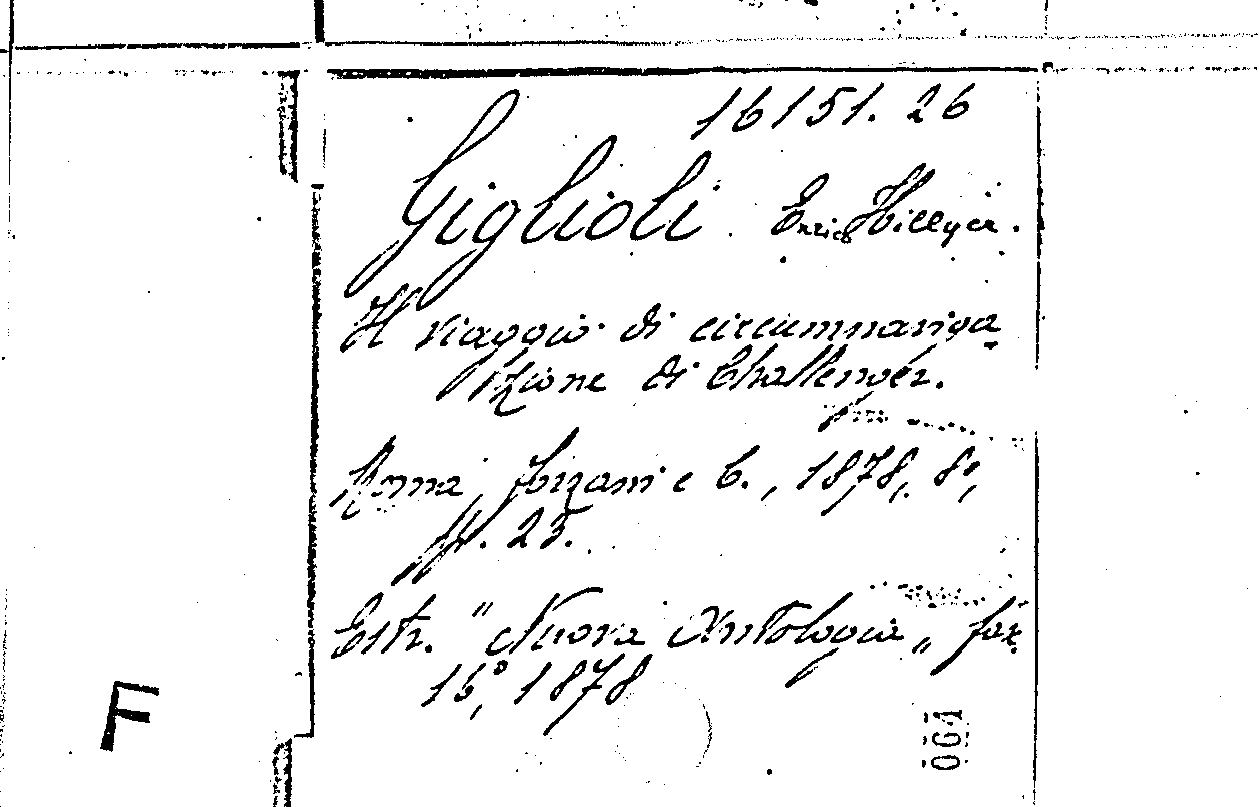 16151. 26
Giglioli Enrico Hillyer.
Il viaggio di circumnaviga-
zione di Challenger.
Roma, Forzani e C., 1878, 8°,
pp. 23.
Estr. "Nuova Antologia„ fasc.
15°, 1878
061
F